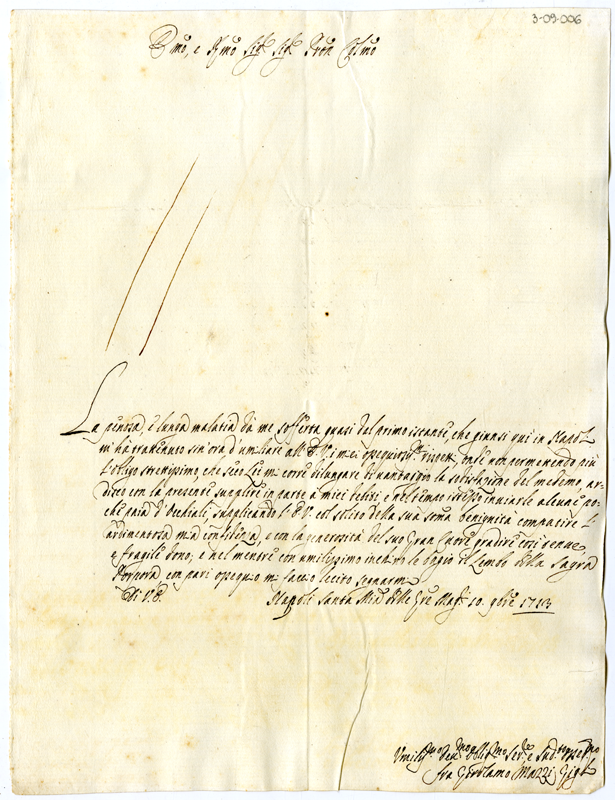 3-09-006
Emo, e Rmo Sigr Sigr Pron Colmo
La penosa, e lunga malatia da me sofferta quasi dal primo istante, che giunsi qui in Napoli
m'ha trattenuto sin'ora d'umiliare all'E.V. i miei ossequiosi rispetti; onde non permettendo più
l'obligo strettissimo, che seco Lei mi corre dilungare di vantaggio la sodisfazione del medemo, ar-
disco con la presente supplire in parte a miei debiti, e nel tempo istesso inviarle alcune po-
che paia d'occhiali, supplicando l'E.V. col solito della sua somma benignità compatire l'
arbimentosa mia confidenza, e con la generosità del suo Gran Cuore gradire così tenue,
e fragile dono; e nel mentre con umilissimo inchino le bagio il Lembo della Sagra
Porpora con pari ossequio mi faccio lecito segnarmi
Di V.E.
Napoli Santa Mia delle Gre Magre 10. gbre 1713
Umilissmo Devmo Obligmo Serve e Sudto
fra Girolamo Mazzi